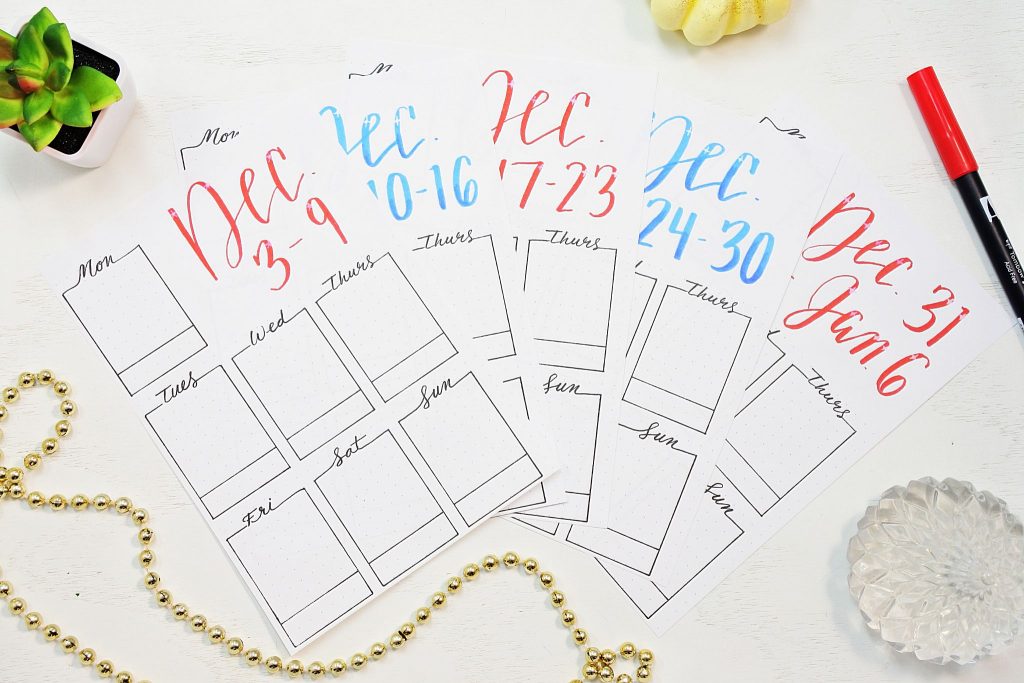 Mon
Dec.
3-9
Mon
Tues
Wed
Thurs
Fri
Sat
Sun
Dec.
10-16
Thurs
Dec.
17-23
Thurs
Sun
Dec.
24-30
Thurs
Sun
Dec. 31
Jan. 6
Thurs
Sun
Tombow
Acid Free